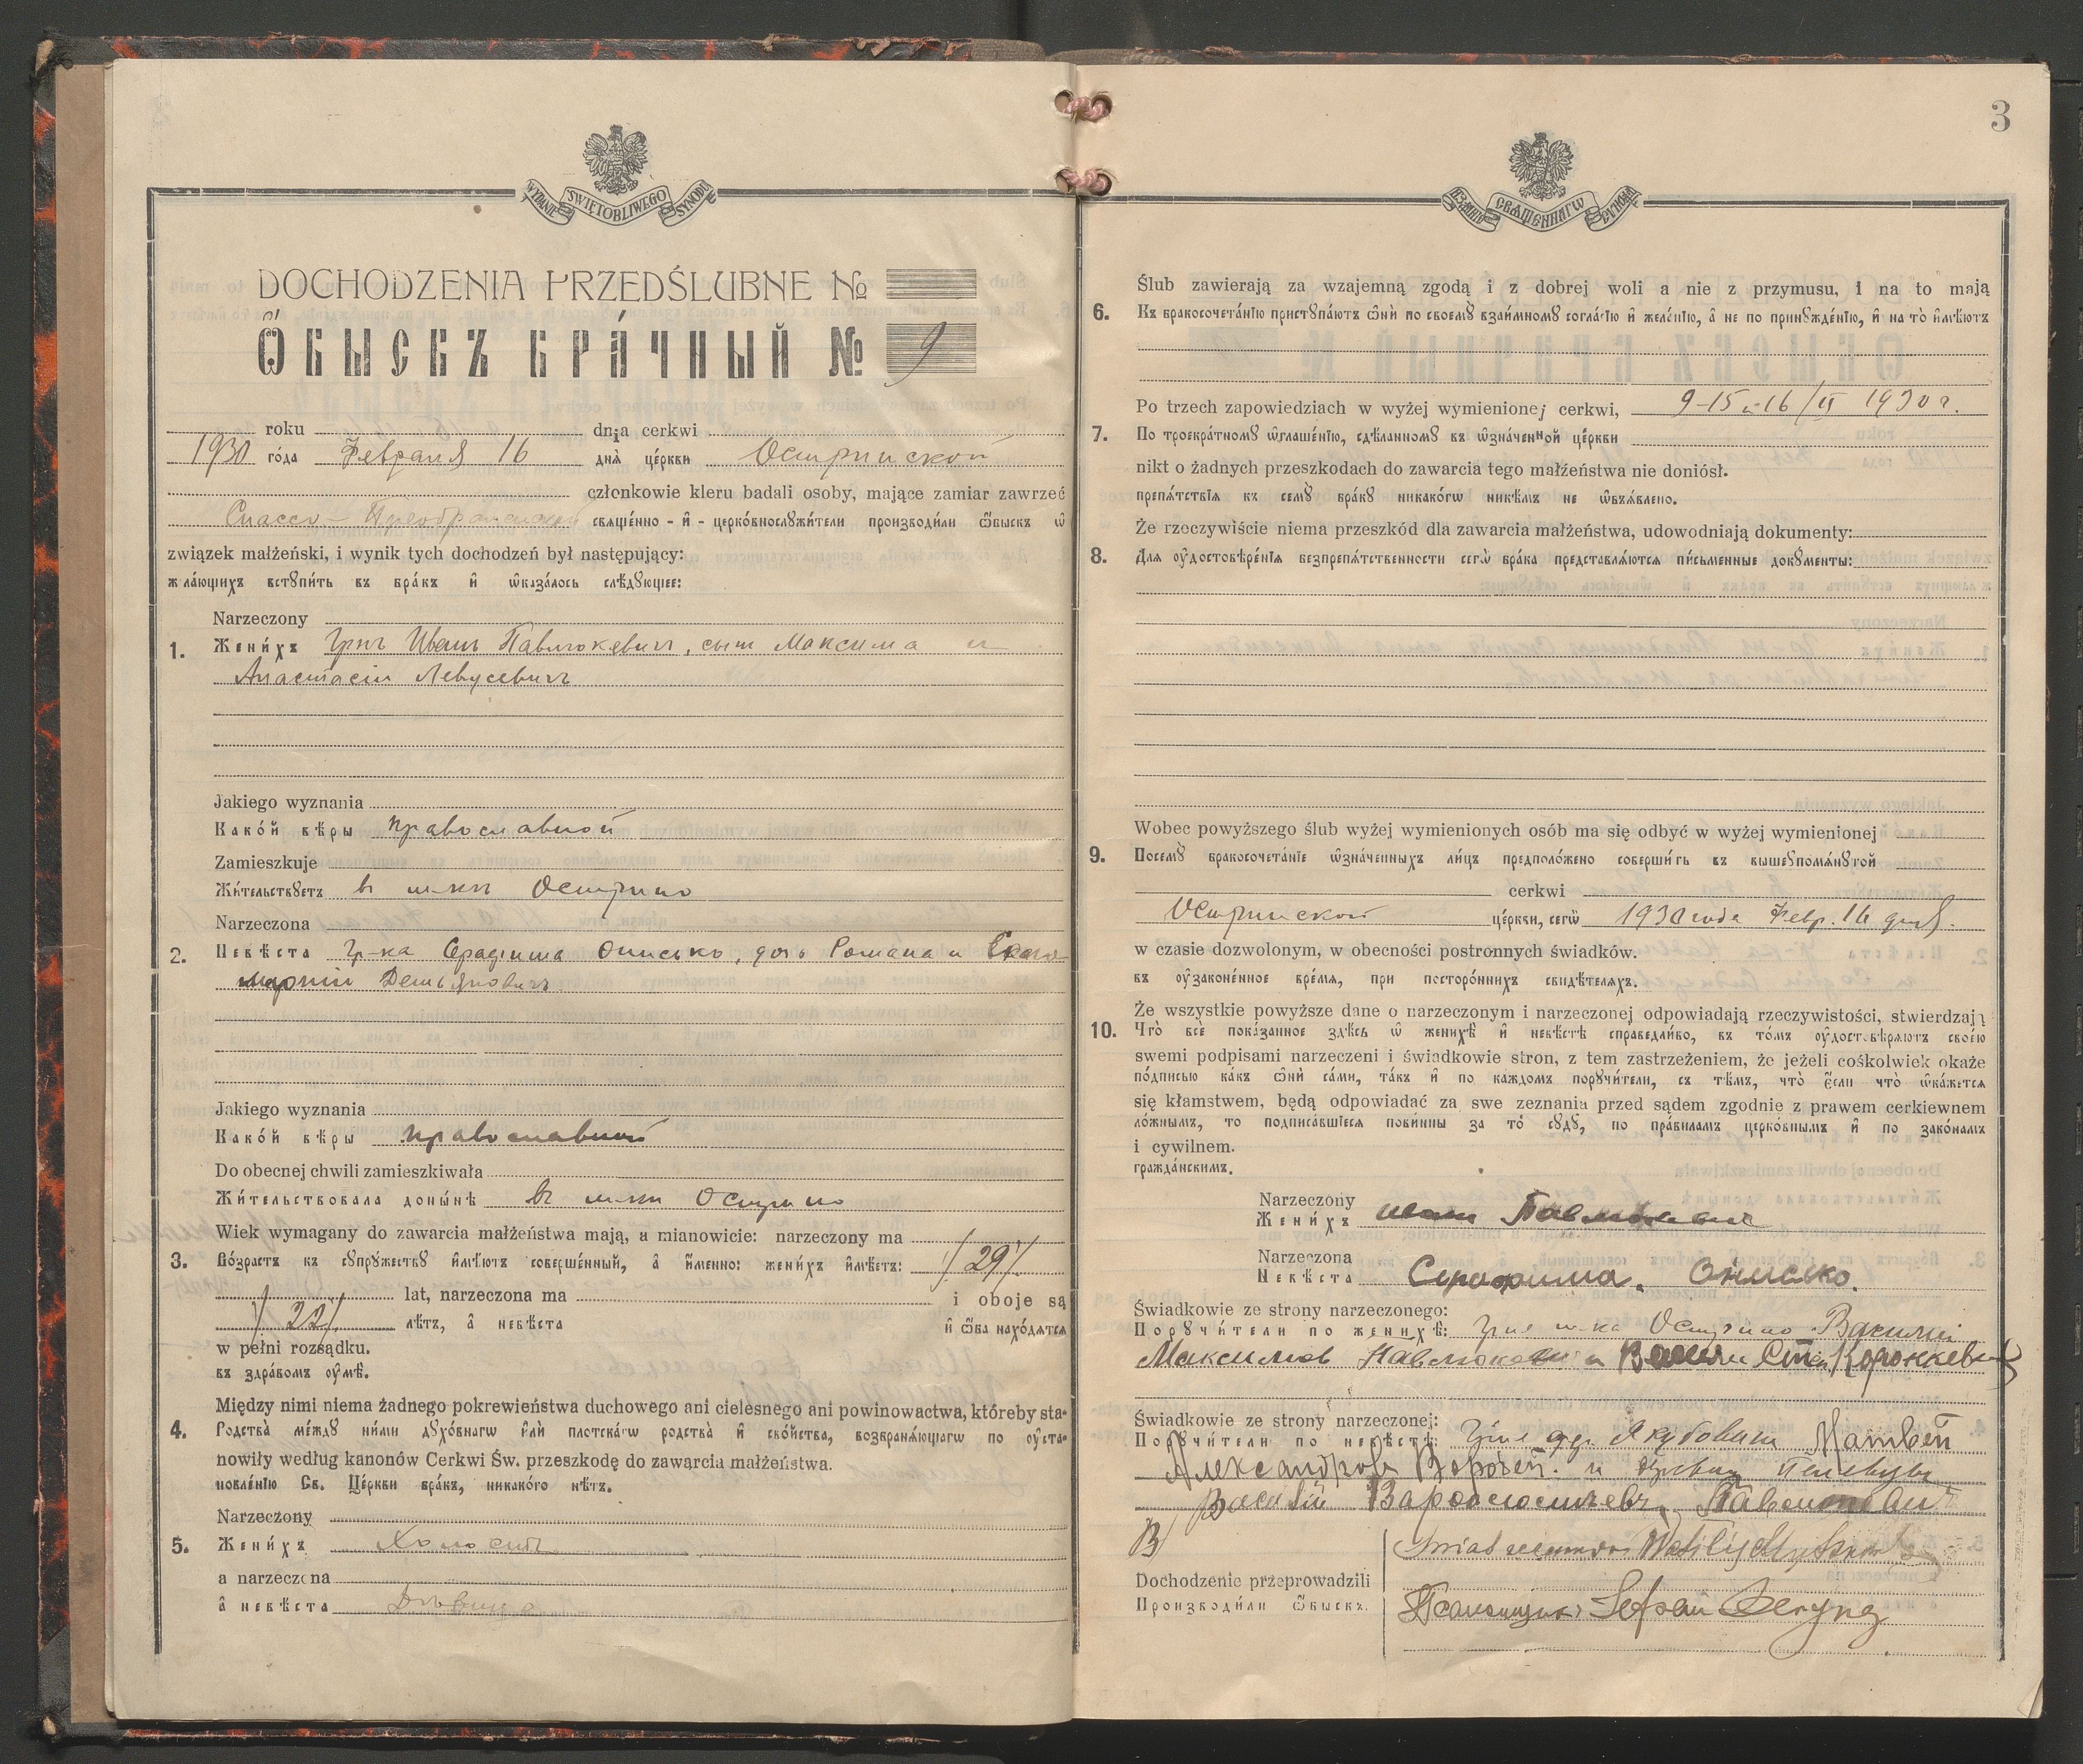 WYDANIE ŚWIĘTOBLIWEGO SYNODU
DOCHODZENIA PRZEDŚLUBNE №
Ѻ҆БЫСКЪ БРА́ЧНЫЙ № 9
roku dnia cerkwi
1930 го́да Февраля 16 днѧ̀ це́ркви Остринской
członkowie kleru badali osoby, mające zamiar zawrzeć
Спассо-Преображенской свѧще́нно-и҆-церко́внослꙋжи́тели производи́ли ѻ҆́быскъ ѡ҆
związek małżeński, i wynik tych dochodzeń był następujący:
жела́ющихъ встꙋпи́ть въ бра́къ и҆ ѡ҆каза́лось слѣ́дꙋющее:
Narzeczony
1. Жени́хъ Гр-нъ Иванъ Павлюкевич, сын Максима и
Анастасіи Левусевичъ
Jakiego wyznania
Како́й вѣ́ры православной
Zamieszkuje
Жи́тельствꙋетъ в м-кѣ Острино
Narzeczona
2. Невѣ́ста Гр-ка Онисько, дочь Романа и
Демьяновичъ
Jakiego wyznania
Како́й вѣ́ры православной
Do obecnej chwili zamieszkiwała
Жи́тельствовала доны́нѣ в м-кѣ Острино
Wiek wymagany do zawarcia małżeństwa mają, a mianowicie: narzeczony ma
3. Во́зрастъ къ сꙋпрꙋ́жествꙋ и҆мѣ́ютъ соверше́нный, а҆ и҆́менно: жени́хъ и҆мѣ́етъ: /29/
lat, narzeczona ma i oboje są
/22/ лѣ́тъ, а҆ невѣ́ста и҆ ѻ҆́ба нахо́дѧтсѧ
w pełni rozsądku.
въ здра́вомъ ᲂу҆мѣ̀.
Między nimi niema żadnego pokrewieństwa duchowego ani cielesnego ani powinowactwa, któreby sta-
4. Родства̀ ме́ждꙋ ни́ми дꙋхо́внагѡ и҆лѝ плотска́гѡ родства̀ и҆ сво́йства, возбранѧ́ющагѡ по ᲂу҆ста-
nowiły według kanonów Cerkwi Św. przeszkodę do zawarcia małżeństwa.
новле́нїю Св. Це́ркви бра́къ, никако́го нѣ́тъ.
Narzeczony
5. Жени́хъ Холостъ
a narzeczona
а҆ невѣ́ста Дѣвица
3
ИЗДА́НІЕ СВѦЩЕ́ННАГѠ СѴНО́ДА
Ślub zawierają za wzajemną zgodą i z dobrej woli a nie z przymusu, i na to mają
6. Къ бракосочета́нїю пристꙋпа́ютъ ѻ҆нѝ по своемꙋ̀ взаи́мномꙋ согла́сїю и҆ жела́нїю, а҆ не по принꙋжде́нїю, и҆ на то̀ и҆мѣ́ютъ
Po trzech zapowiedziach w wyżej wymienionej cerkwi, 9-15 и 16/II 1930 г.
7. По троекра́тномꙋ ѡ҆глаше́нїю, сдѣ́ланномꙋ въ ѡ҆зна́ченной це́ркви
nikt o żadnych przeszkodach do zawarcia tego małżeństwa nie doniósł.
препѧ́тствїѧ къ семꙋ̀ бра́кꙋ никако́гѡ никѣ́мъ не ѡ҆бъѧ́влено.
Że rzeczywiście niema przeszkód dla zawarcia małżeństwa, udowodniają dokumenty:
8. Длѧ ᲂу҆достовѣре́нїѧ безпрепѧ́тственности сегѡ̀ бра́ка представлѧ́ютсѧ пи́сьменные докꙋме́нты:
Wobec powyższego ślub wyżej wymienionych osób ma się odbyć w wyżej wymienionej
9. Посемꙋ̀ бракосочета́нїе ѡ҆зна́ченныхъ ли́цъ предполо́жено соверши́ть въ вышеꙋпомѧ́нꙋтой
cerkwi
Остринской це́ркви, сегѡ̀ 1930 года Февр. 16 дня.
w czasie dozwolonym, w obecności postronnych świadków.
въ ᲂу҆зако́ненное вре́мѧ, при посторо́ннихъ свидѣ́телѧхъ.
Że wszystkie powyższe dane o narzeczonym i narzeczonej odpowiadają rzeczywistości, stwierdzają
10. Что̀ всѐ пока́занное здѣ́сь ѡ҆ женихѣ̀ и҆ невѣ́стѣ справедли́во, въ то́мъ ᲂу҆достовѣрѧ́ютъ свое́ю
swemi podpisami narzeczeni i świadkowie stron, z tem zastrzeżeniem, że jeżeli cośkolwiek okaże
по́дписью ка́къ ѻ҆нѝ са́ми, та́къ и҆ по ка́ждомъ порꙋчи́тели, съ тѣ́мъ, что̀ є҆́сли что̀ ѡ҆ка́жетсѧ
się kłamstwem, będą odpowiadać za swe zeznania przed sądem zgodnie z prawem cerkiewnem
ло́жнымъ, то подписа́вшїесѧ пови́нны за то̀ сꙋдꙋ̀, по пра́виламъ церко́внымъ и҆ по зако́намъ
i cywilnem.
гражда́нскимъ.
Narzeczony
Жени́хъ Иван Павлюкевич
Narzeczona
Невѣ́ста Серафима. Онисько.
Świadkowie ze strony narzeczonego:
Порꙋчи́тели по женихѣ̀: м-ка Острино Василій
Максимов Павлюкевич и
Świadkowie ze strony narzeczonej:
Порꙋчи́тели по невѣ́стѣ: Матвей
Александров и
Василій Павлюкевич
Dochodzenie przeprowadzili
Производи́ли ѻ҆́быскъ.
Псаломщикъ